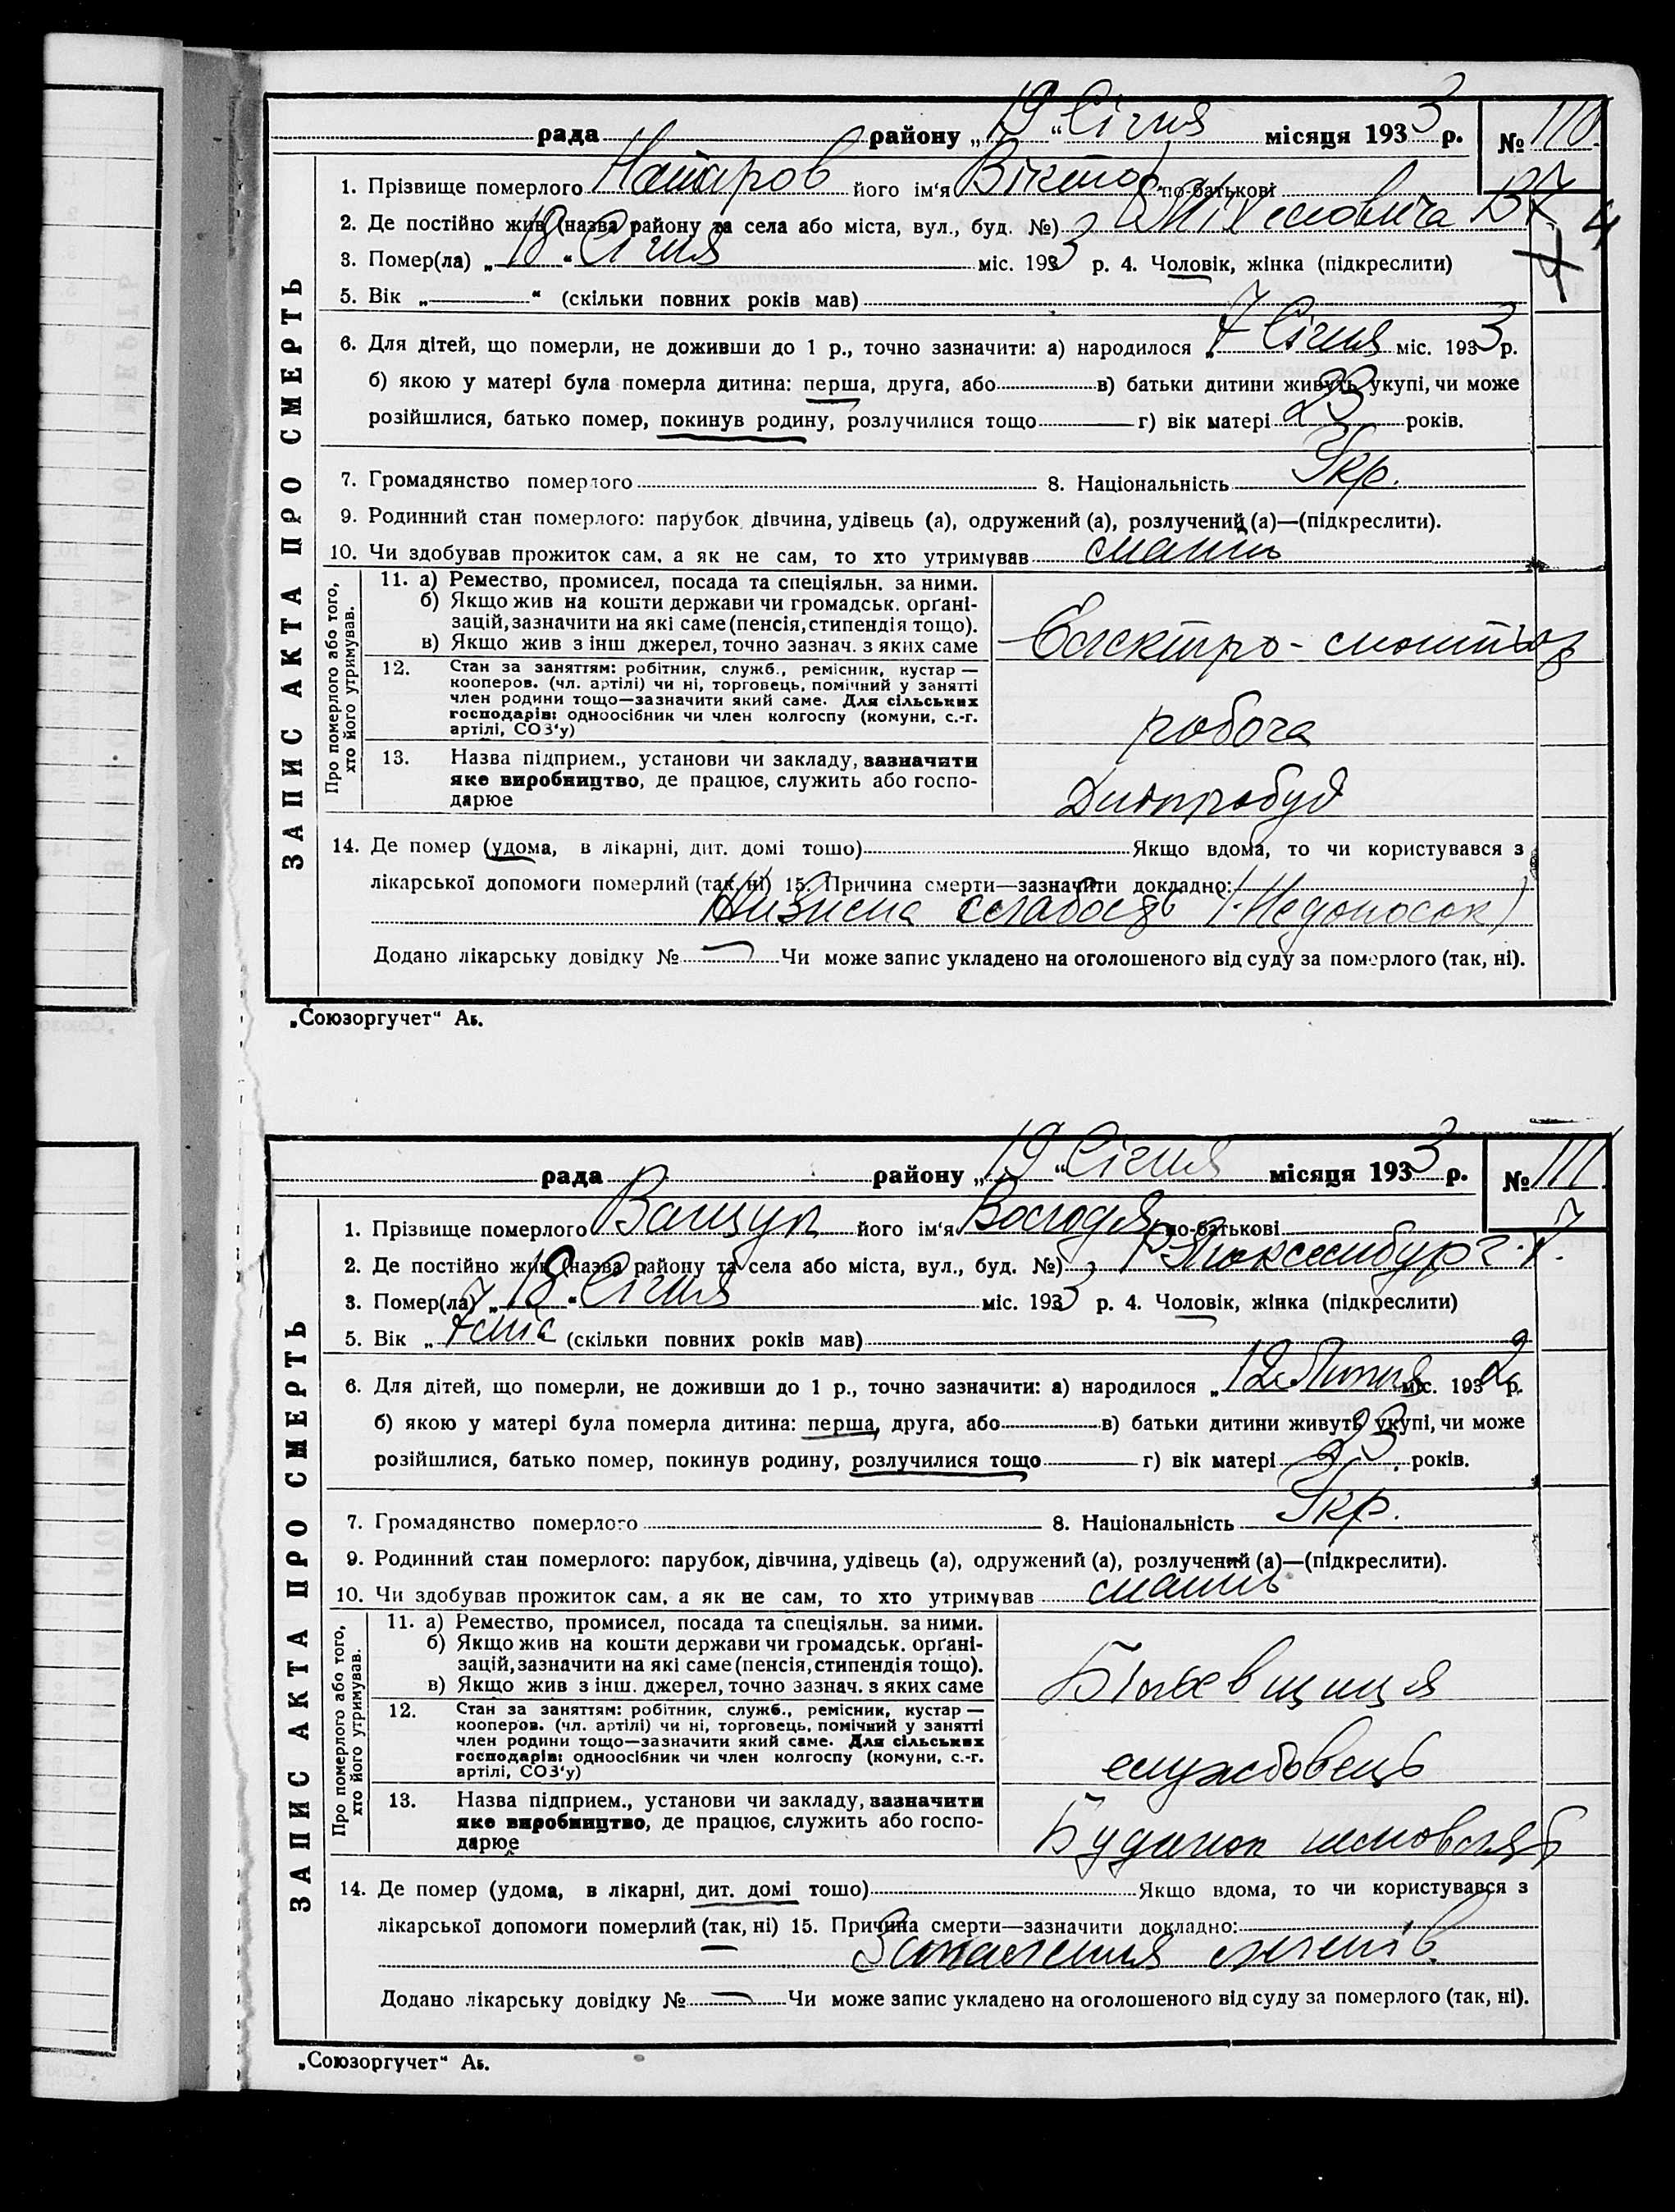 рада району „19“ Січня місяця 1933 р. № 110
1. Прізвище померлого його ім'я Віктор по-батькові
2. Де постійно жив (назва району та села або міста, вул., буд. №)
3. Помер(ла) „18“ Січня міс. 1933 р. 4. Чоловік, жінка (підкреслити)
5. Вік „ “ (скільки повних років мав)
6. Для дітей, що померли, не доживши до 1 р., точно зазначити: а) народилося „7 Січня міс. 1933 р.
б) якою у матері була померла дитина: перша, друга, або в) батьки дитини живуть укупі, чи може
розійшлися, батько помер, покинув родину, розлучилися тощо г) вік матері 23 років.
7. Громадянство померлого 8. Національність Укр.
9. Родинний стан померлого: парубок, дівчина, удівець (а), одружений (а), розлучений (а)—(підкреслити).
10. Чи здобував прожиток сам, а як не сам, то хто утримував мати
ЗАПИС АКТА ПРО СМЕРТЬ
Про померлого або того, хто його утримував.
11. а) Ремество, промисел, посада та спеціяльн. за ними.
б) Якщо жив на кошти держави чи громадськ. орґані-
зацій, зазначити на які саме (пенсія, стипендія тощо).
в) Якщо жив з інш джерел, точно зазнач. з яких саме
12. Стан за заняттям: робітник, служб., ремісник, кустар —
кооперов. (чл. артілі) чи ні, торговець, помічний у занятті
член родини тощо—зазначити який саме. Для сільських
господарів: одноосібник чи член колгоспу (комуни, с.-г.
артілі, СОЗ'у)
робоча
13. Назва підприєм., установи чи закладу, зазначити
яке виробництво, де працює, служить або госпо-
дарює
Дніпробуд
14. Де помер (удома, в лікарні, дит. домі тощо) Якщо вдома, то чи користувався з
лікарської допомоги померлий (так, ні) 15. Причина смерти—зазначити докладно:
слабость (Недоносок)
Додано лікарську довідку № Чи може запис укладено на оголошеного від суду за померлого (так, ні).
„Союзоргучет“ Аб.
рада району „19“ Січня місяця 1933 р. № 111
1. Прізвище померлого Ващук його ім'я Володя по-батькові
2. Де постійно жив (назва району та села або міста, вул., буд. №) Р. Люксембург
3. Помер(ла) „18“ Січня міс. 1933 р. 4. Чоловік, жінка (підкреслити)
5. Вік „7 міс (скільки повних років мав)
6. Для дітей, що померли, не доживши до 1 р., точно зазначити: а) народилося „12 Липня міс. 1932 р.
б) якою у матері була померла дитина: перша, друга, або в) батьки дитини живуть укупі, чи може
розійшлися, батько помер, покинув родину, розлучилися тощо г) вік матері 23 років.
7. Громадянство померлого 8. Національність Укр.
9. Родинний стан померлого: парубок, дівчина, удівець (а), одружений (а), розлучений (а)—(підкреслити).
10. Чи здобував прожиток сам, а як не сам, то хто утримував мати
ЗАПИС АКТА ПРО СМЕРТЬ
Про померлого або того, хто його утримував.
11. а) Ремество, промисел, посада та спеціяльн. за ними.
б) Якщо жив на кошти держави чи громадськ. орґані-
зацій, зазначити на які саме (пенсія, стипендія тощо).
в) Якщо жив з інш. джерел, точно зазнач. з яких саме
12. Стан за заняттям: робітник, служб., ремісник, кустар —
кооперов. (чл. артілі) чи ні, торговець, помічний у занятті
член родини тощо—зазначити який саме. Для сільських
господарів: одноосібник чи член колгоспу (комуни, с.-г.
артілі, СОЗ'у)
службовець
13. Назва підприєм., установи чи закладу, зазначити
яке виробництво, де працює, служить або госпо-
дарює
Будинок немовлят
14. Де помер (удома, в лікарні, дит. домі тощо) Якщо вдома, то чи користувався з
лікарської допомоги померлий (так, ні) 15. Причина смерти—зазначити докладно:
Запалення легенів
Додано лікарську довідку № Чи може запис укладено на оголошеного від суду за померлого (так, ні).
„Союзоргучет“ Аб.